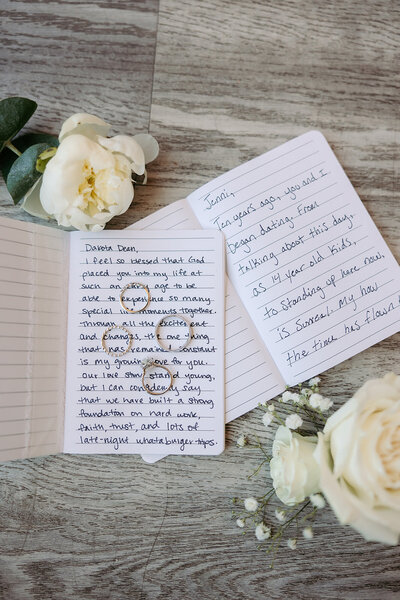 Dakota Dean,
I feel so blessed that God
placed you into my life at
such an early age to be
able to experience so many
special moments together.
through all the excitement
and changes, the one thing
that has remained constant
is my growing love for you.
Our love story started young,
but I can confidently say
that we have built a strong
foundation on hard work,
faith, trust, and lots of
late-night whataburger trips.
Jenni,
Ten years ago, you and I
began dating. From
talking about this day,
as 14 year old kids,
to standing up here now,
is surreal. My how
the time has flown